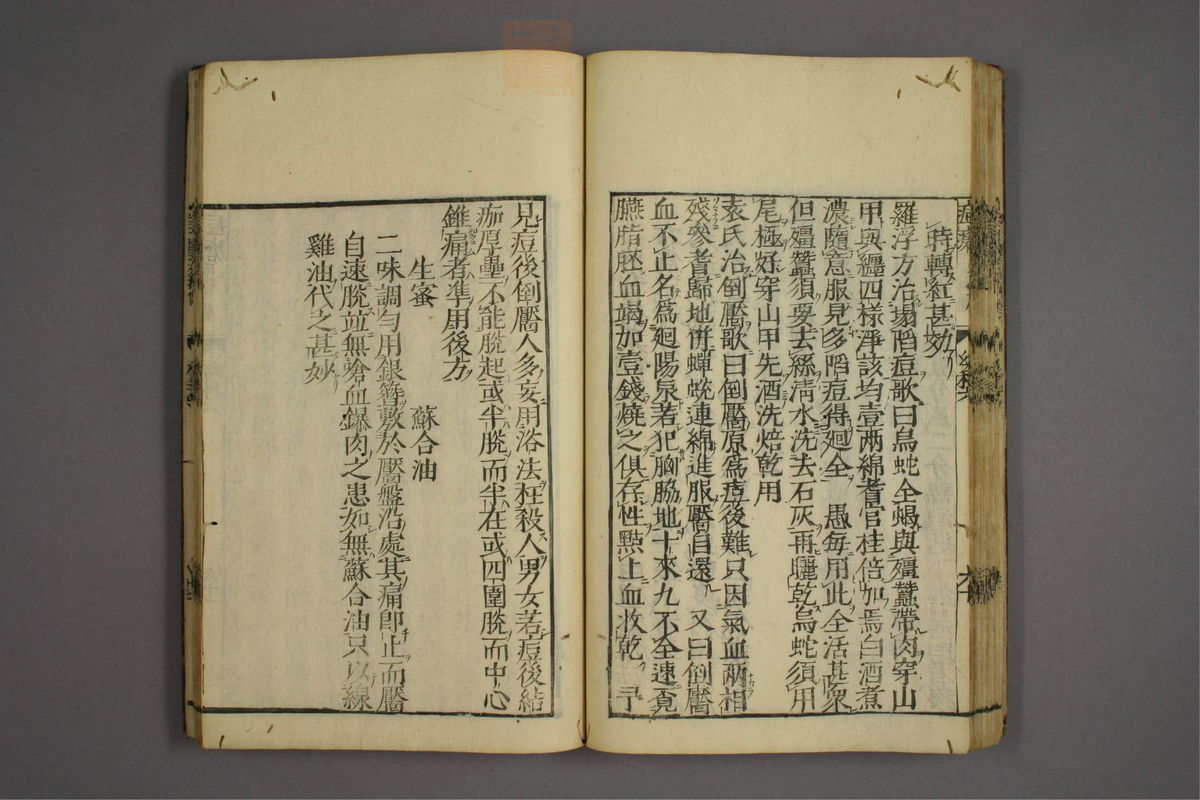 時轉紅甚効
羅浮方治塌陷痘歌曰烏蛇全蝎與殭蠶帶肉穿山
甲與纒四樣淨該均壹兩綿耆官桂倍加焉白酒煮
濃隨意服見多陷痘得廻全 愚每用此全活甚衆
但殭蠶須要去絲淸水洗去石灰再曬乾烏蛇須用
尾極好穿山甲先酒洗焙乾用
袁氏治倒靨歌曰倒靨原爲痘後難只因氣血兩相
殘參耆歸地併蟬蛻連綿進服靨自還 又曰倒靨
血不止名爲廻陽泉若犯胸脇地十來九不全速覓
臙脂胚血竭加壹錢燒之俱存性㸃上血收乾 予
見痘後倒靨人多妄用浴法枉殺人男女若痘後結
痂厚壘不能脫起或半脫而半在或四圍脫而中心
錐痛者準用後方
生蜜 蘇合油
二味調勻用銀簪敷於靨盤沿處其痛卽止而靨
自速脫並無瘡血爆肉之患如無蘇合油只以線
雞油代之甚妙